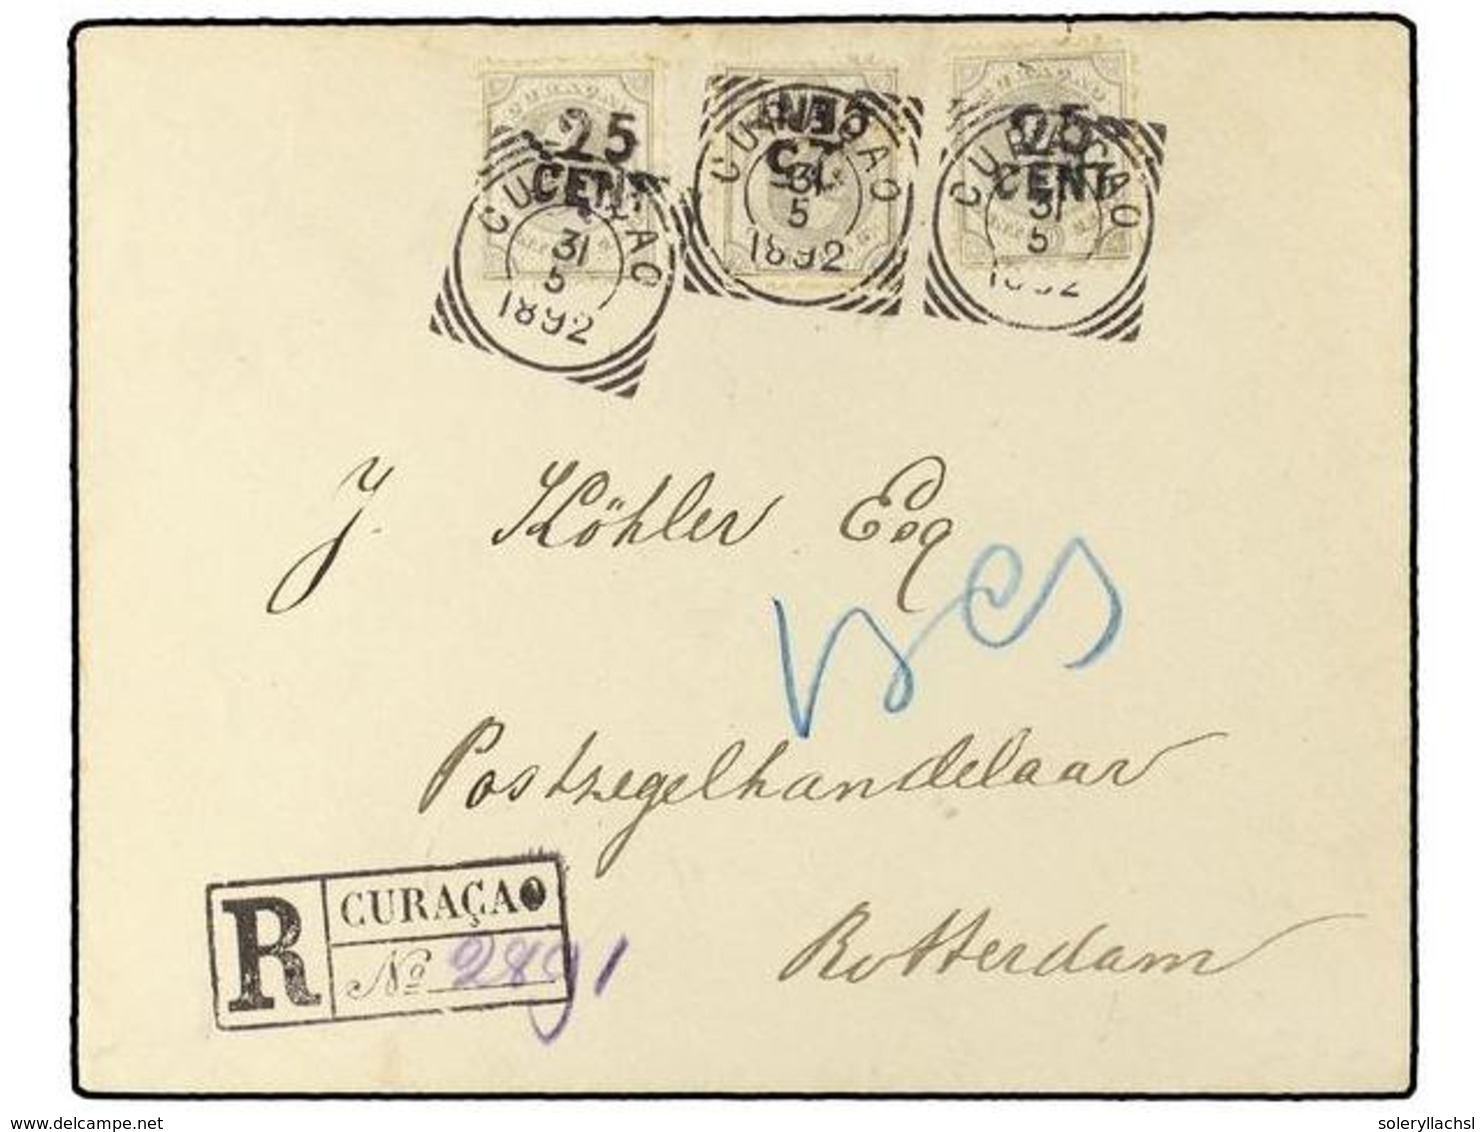 25
CENT
CURAÇAO
31
5
1892
25
CENT
CURAÇAO
31
5
1892
25
CENT
CURAÇAO
31
5
1892
J. Köhler Esq
Postzegelhandelaar
Rotterdam
R
CURAÇAO
No 2891
www.delcampe.net
soleryllachsl